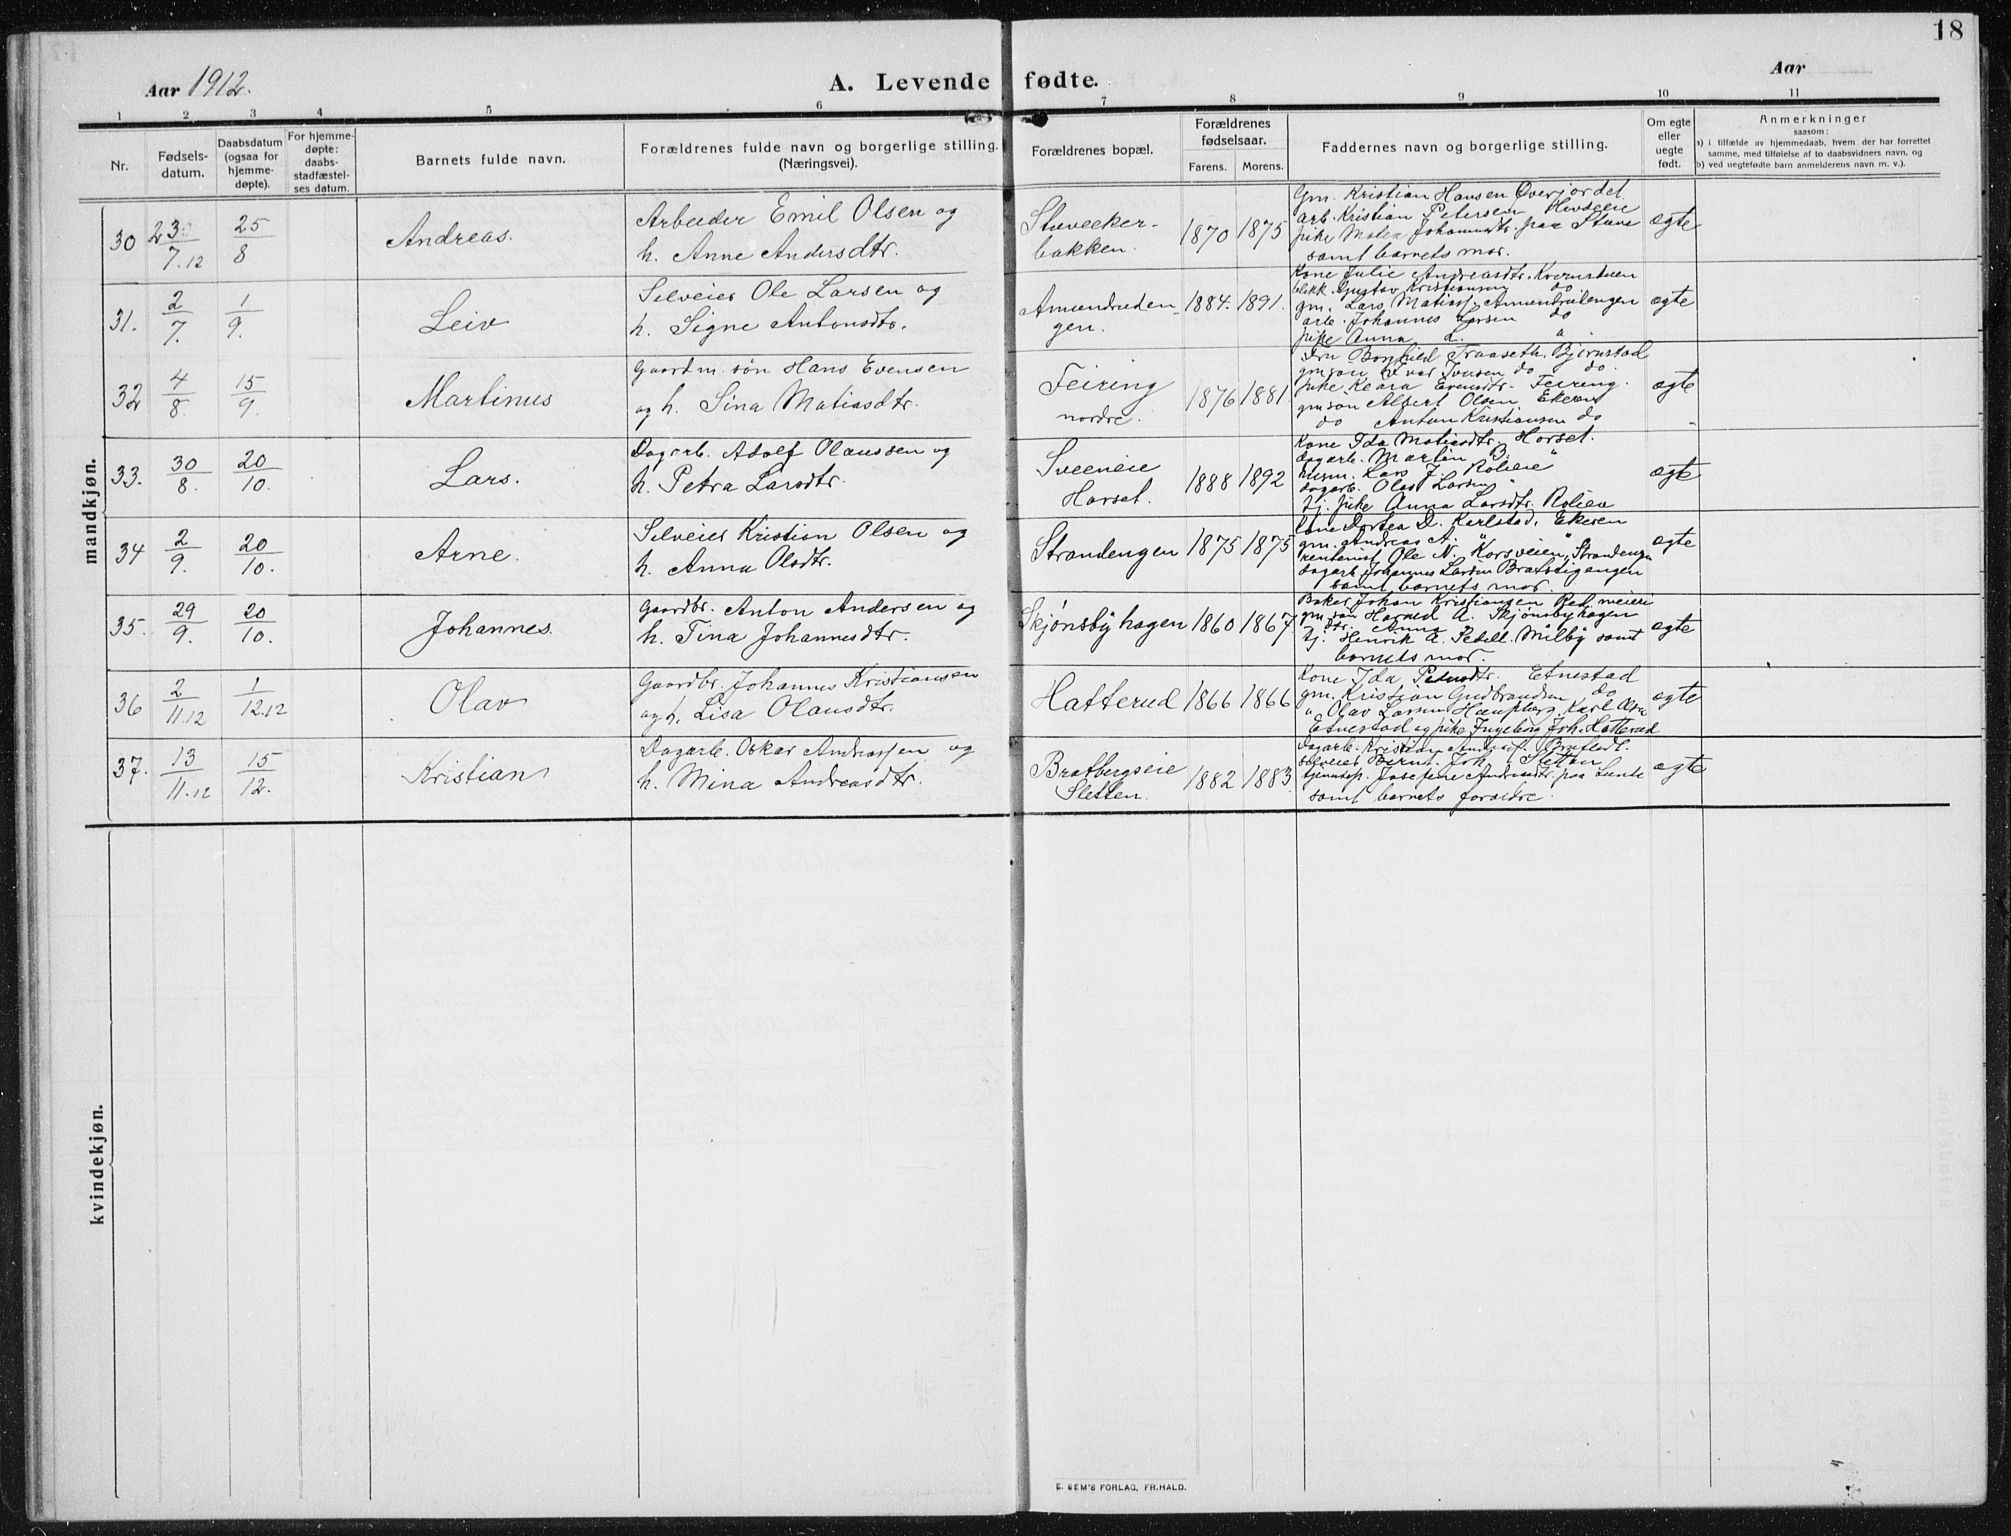 18
Aar 1912.
A. Levende fødte.
Aar
1 2 3 4 5 6 7 8 9 10 11
Nr.
Fødsels-
datum.
Daabsdatum
(ogsaa for
hjemme-
døpte).
For hjemme-
døpte:
daabs-
stadfæstel-
ses datum.
Barnets fulde navn.
Forældrenes fulde navn og borgerlige stilling.
(Næringsvei).
Forældrenes bopæl.
Forældrenes
fødselsaar.
Farens. Morens.
Faddernes navn og borgerlige stilling.
Om egte
eller
uegte
født.
Anmerkninger
saasom:
a) i tilfælde av hjemmedaab, hvem der har forrettet
samme, med tilføielse af to daabsvidners navn, og
b) ved uegtefødte barn anmelderens navn m. v.).
mandkjøn.
30 23/7.12 25/8 Andreas.
Arbeider Emil Olsen og
h. Anne Andersdtr.
bakken.
1870 1875
Gm. Kristian Hansen Øverjordet
arb. Kristian Petersen
pike Johannsdtr. paa
samt barnets mor.
egte
31. 2/7. 1/9. Leiv
Selveier Ole Larsen og
h. Signe Antonsdtr.
Amundruden-
gen.
1884. 1891.
Kone Julie Andreasdtr.
blikk. Gustav Kristiansen do
gm. Lars Matiass. Amundrudengen
arb. Johannes Larsen do
pike Anna L. "
egte
32 4/8 15/9. Martinus
Gaardm. søn Hans Evensen
og h. Sina Matiasdtr.
Feiring
nordre.
1876 1881.
Bjørnstad
gmsøn Iversen do do.
pike Klara Evensdtr. Feiring.
gmsøn Albert Olsen Ekeren
do Anton Kristiansen do
egte
33. 30/8. 20/10. Lars.
Dagarb. Adolf Olaussen og
h. Petra Larsdtr.
Sveeneie
Horset.
1888 1892
Kone Ida Matiasdtr. Horset.
dagarb. Martin B. "
husm. Lars J. Rolieie
dagarb. Olaf Larsen "
tj. pike Anna Larsdtr. Roliev
egte
34 2/9. 20/10. Arne.
Selveier Kristian Olsen og
h. Anna Olsdtr.
Strandengen
1875 1875
Kone Dortea D. Karlstad, Ekeren
gm. Andreas A. " "
Ole N. Korsveien, Strandengen
dagarb. Johannes Larsen
samt barnets mor.
egte
35. 29/9. 20/10. Johannes.
Gaardbr. Anton Andersen og
h. Tina Johannesdtr.
Skjønsby hagen
1860 1867
Baker Johan Kristiansen meieri
gm. søn A. Skjønsbyhagen
dtr. Anna
tj. Henrik A. Milby samt
barnets mor.
egte
36 2/11.12 1/12.12 Olav
Gaardbr. Johannes Kristiansen
og h. Lisa Olausdtr.
Hatterud
1866 1866
Kone Ida Etnestad
gm. Kristian Gudbrandsen do
" Olav Larsen Karl Olsen
Etnestad og pike Ingeborg Joh. Hatterud
egte
37. 13/11.12 15/12. Kristian
Dagarb. Oskar Andreassen og
h. Mina Andreasdtr.
Bratbergseie
Sletten.
1882 1883.
Dagarb. Kristian
selveier Bernt Joh. Sletten
Josefine Andreasdtr. paa
samt barnets foreldre.
egte
kvindekjøn.
E. SEM'S FORLAG, FR.HALD.